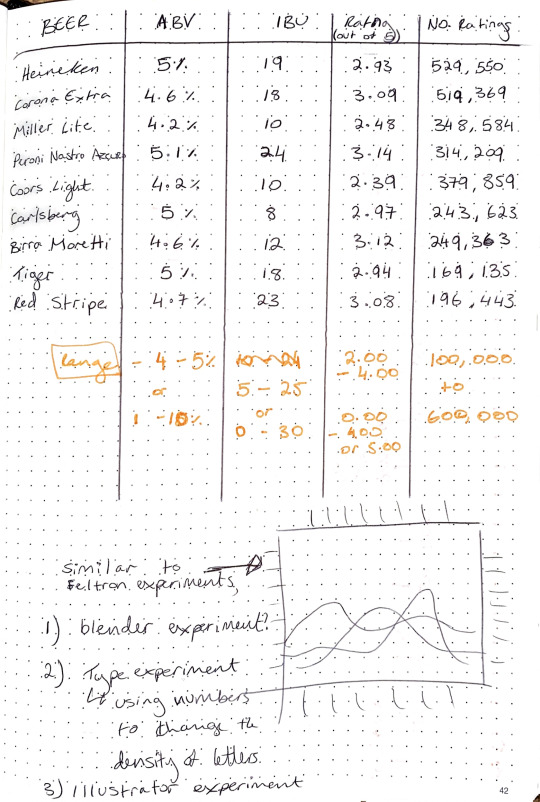 BEER ABV IBU Rating (out of 5) No. Ratings
Heineken 5% 19 2.93 529,550
Corona Extra 4.6% 18 3.09 519,369
Miller Lite 4.2% 10 2.48 348,584
Peroni Nastro Azzuro 5.1% 24 3.14 314,209
Coors Light 4.2% 10 2.39 379,859
Carlsberg 5% 8 2.97 243,623
Birra Moretti 4.6% 12 3.12 249,363
Tiger 5% 18 2.94 169,135
Red Stripe 4.7% 23 3.08 196,443
Range - 4 - 5% 10 - 24 2.00 - 4.00 100,000
or 5 - 25 to
1 - 10% or 0.00 600,000
0 - 30 - 4.00
or 5.00
Similar to
Feltron experiments,
1) blender experiment?
2) Type experiment
↳ using numbers
to change the
density of letters
3) Illustrator experiment
42